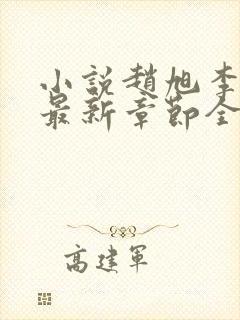 小說趙旭李
最新章節全
高建軍